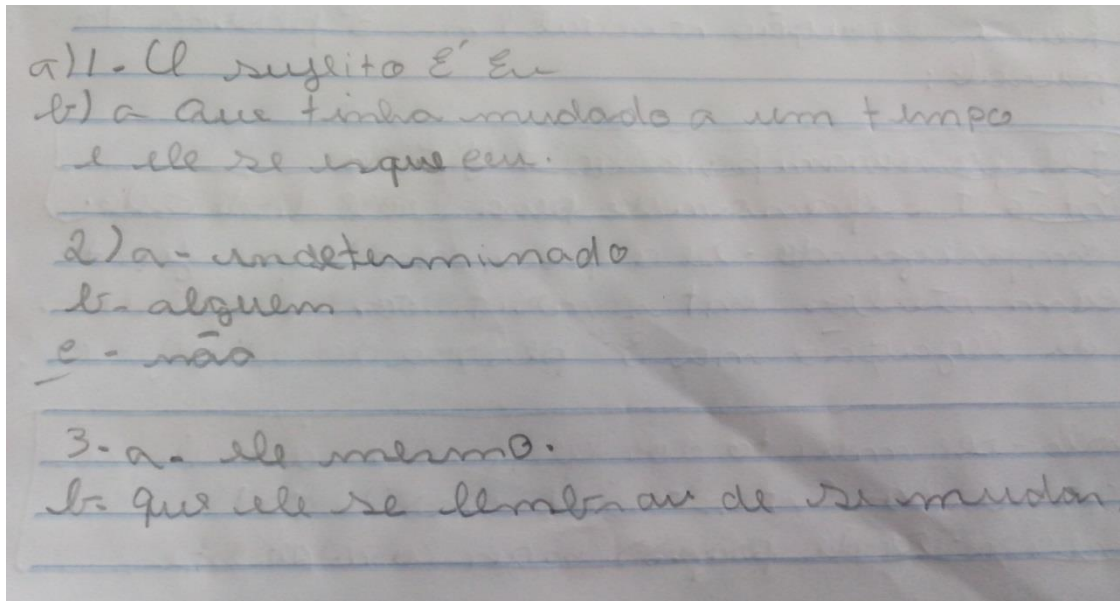 a) 1. O sujeito É Eu
b) a Que tinha mudado a um tempo
e ele se esqueceu.
2) a - indeterminado
b - alguem
c - não
3 - a - ele mesmo.
b - que ele se lembrou de se mudar